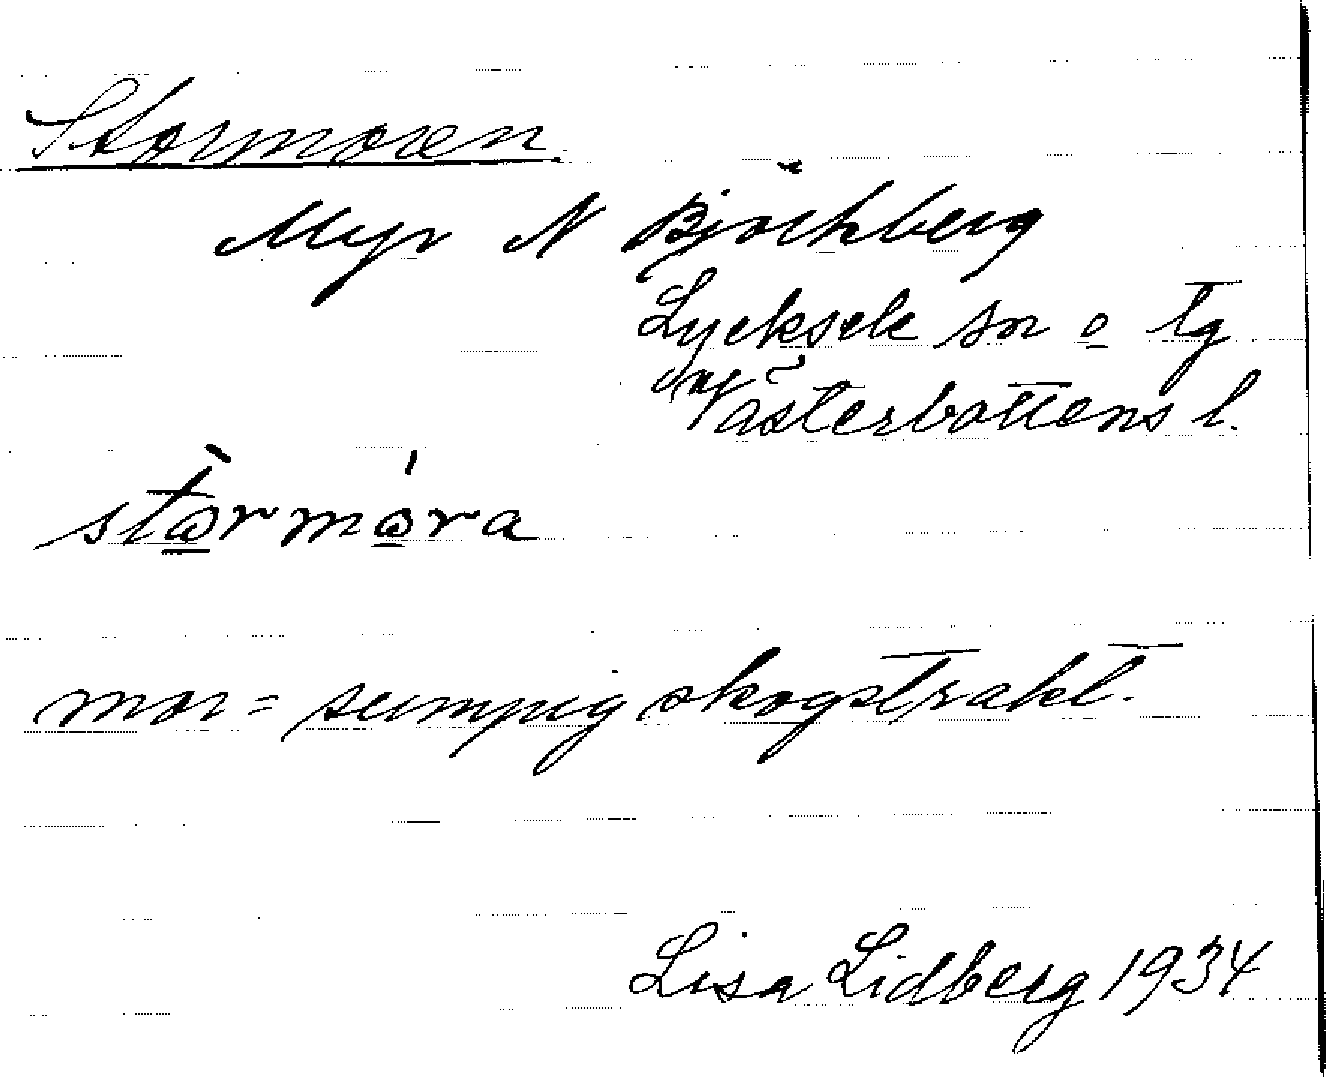 Stormoren.
Myr N Björkberg
Lycksele sn o tg
Västerbottens l.
stòrmóra
mor = sumpig skogstrakt.
Lisa Lidberg 1934